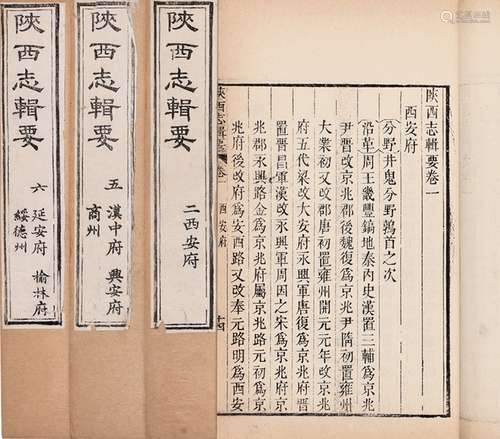 陝西志輯要
六
延安府
榆林府
綏德州
陝西志輯要
五
漢中府
興安府
商州
陝西志輯要
二
西安府
陝西志輯要卷一
西安府
分野井鬼分野鶉首之次
沿革周王畿豐鎬地秦內史漢置三輔為京兆
尹晉改京兆郡後魏復為京兆尹隋初置雍州
大業初又改郡唐初置雍州開元元年改京兆
府五代梁改大安府永興軍唐復為京兆府晉
置晉昌軍漢改永興軍周因之宋為京兆府京
兆郡永興路金為京兆府屬京兆路元初為京
兆府後改府為安西路又改奉元路明為西安
陝西志輯要
卷一
西安府
十四